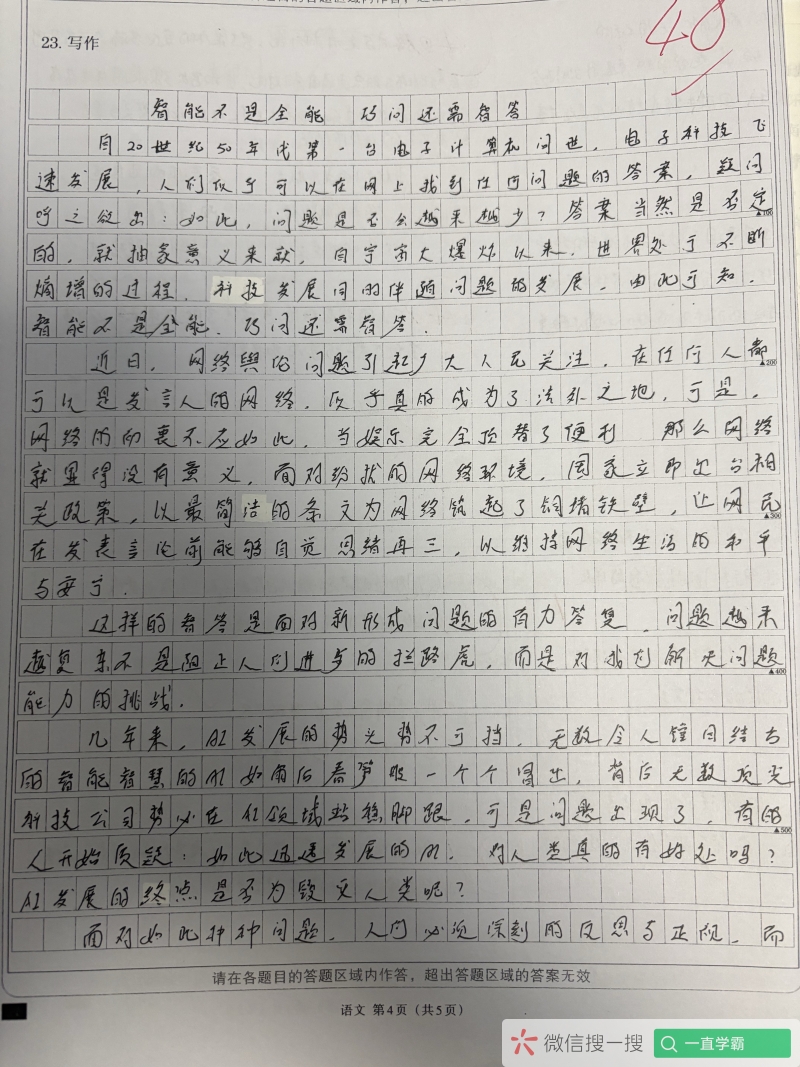 23. 写作
48
智能不是全能 巧问还需智答
自20世纪50年代第一台电子计算机问世，电子科技飞
速发展，人们似乎可以在网上找到任何问题的答案，疑问
呼之欲出：如此，问题是否会越来越少？答案当然是否定
▲100
的，就抽象意义来就，自宇宙大爆炸以来，世界处于不断
熵增的过程，科技发展同时伴随问题的发展，由此可知，
智能不是全能，巧问还需智答.
近日，网络舆论问题引起广大人民关注，在任何人都
▲200
可以是发言人的网络，似乎真的成为了法外之地，可是，
网络的初衷不应如此，当娱乐完全顶替了便利 那么网络
就显得没有意义，面对纷扰的网络环境，国家立即出台相
关政策，以最简洁的条文为网络筑起了铜墙铁壁，让网民
▲300
在发表言论前能够自觉思绪再三，以维持网络生活的和平
与安宁.
这样的智答是面对新形成问题的有力答复，问题越来
越复杂不是阻止人们进步的拦路虎，而是对我们解决问题
▲400
能力的挑战.
几年来，AI发展的势头势不可挡，无数令人瞠目结舌
的智能智慧的AI如雨后春笋般一个个冒出，背后无数顶尖
科技公司势必在AI领域站稳脚跟，可是问题出现了，有的
▲500
人开始质疑：如此迅速发展的AI，对人类真的有好处吗？
AI发展的终点是否为毁灭人类呢？
面对如此种种问题，人们必须深刻的反思与正视，而
请在各题目的答题区域内作答，超出答题区域的答案无效
语文 第4页（共5页）
微信搜一搜
一直学霸